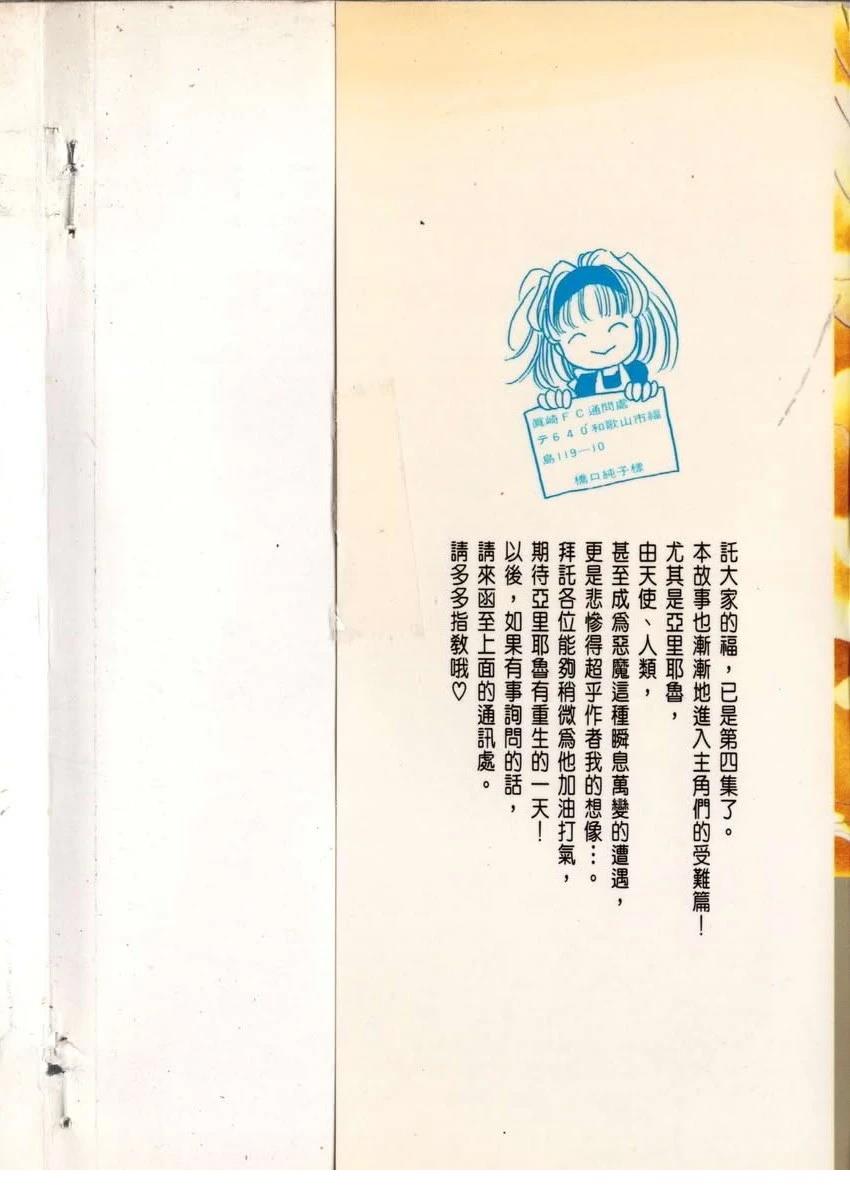 眞崎FC通問處
テ640和歌山市福
島119—10
橋口純子樣
託大家的福，已是第四集了。
本故事也漸漸地進入主角們的受難篇！
尤其是亞里耶魯，
由天使、人類，
甚至成爲惡魔這種瞬息萬變的遭遇，
更是悲慘得超乎作者我的想像…。
拜託各位能夠稍微爲他加油打氣，
期待亞里耶魯有重生的一天！
以後，如果有事詢問的話，
請來函至上面的通訊處。
請多多指敎哦♡